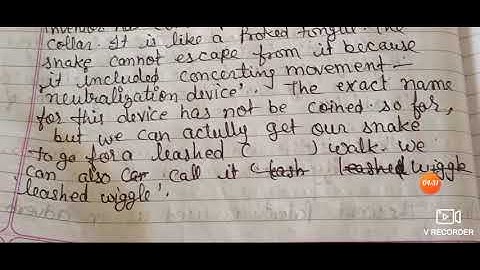 collar. It is like a froked tongue. The
snake cannot escape from it because
it included concerting movement-
neutralization device'.. The exact name
for this device has not be coined so far,
but we can actully get our snake
to go for a leashed ( ) walk. we
can also call it leash leashed wiggle
leashed wiggle'.
04:37
V RECORDER